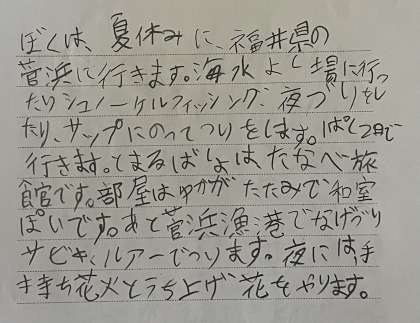 ぼくは、夏休みに、福井県の
菅浜に行きます。海水よし場に行っ
たりシュノーケルフィッシング、夜づりをし
たり、サップにのってつりをします。ぱく2日で
行きます。とまるばしょは、たなべ旅
館です。部屋はゆかがたたみで和室
ぽいです。あと菅浜漁港でなげづり
サビキ、ルアーでつります。夜には、手
持ち花火とうち上げ花をやります。